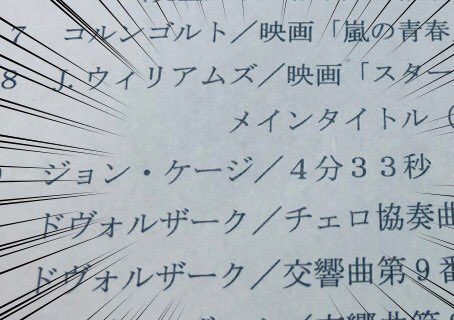 7 コルンゴルト／映画「嵐の青春
8 J. ウィリアムズ／映画「スター
メインタイトル（
ジョン・ケージ／４分３３秒
ドヴォルザーク／チェロ協奏曲
ドヴォルザーク／交響曲第９番